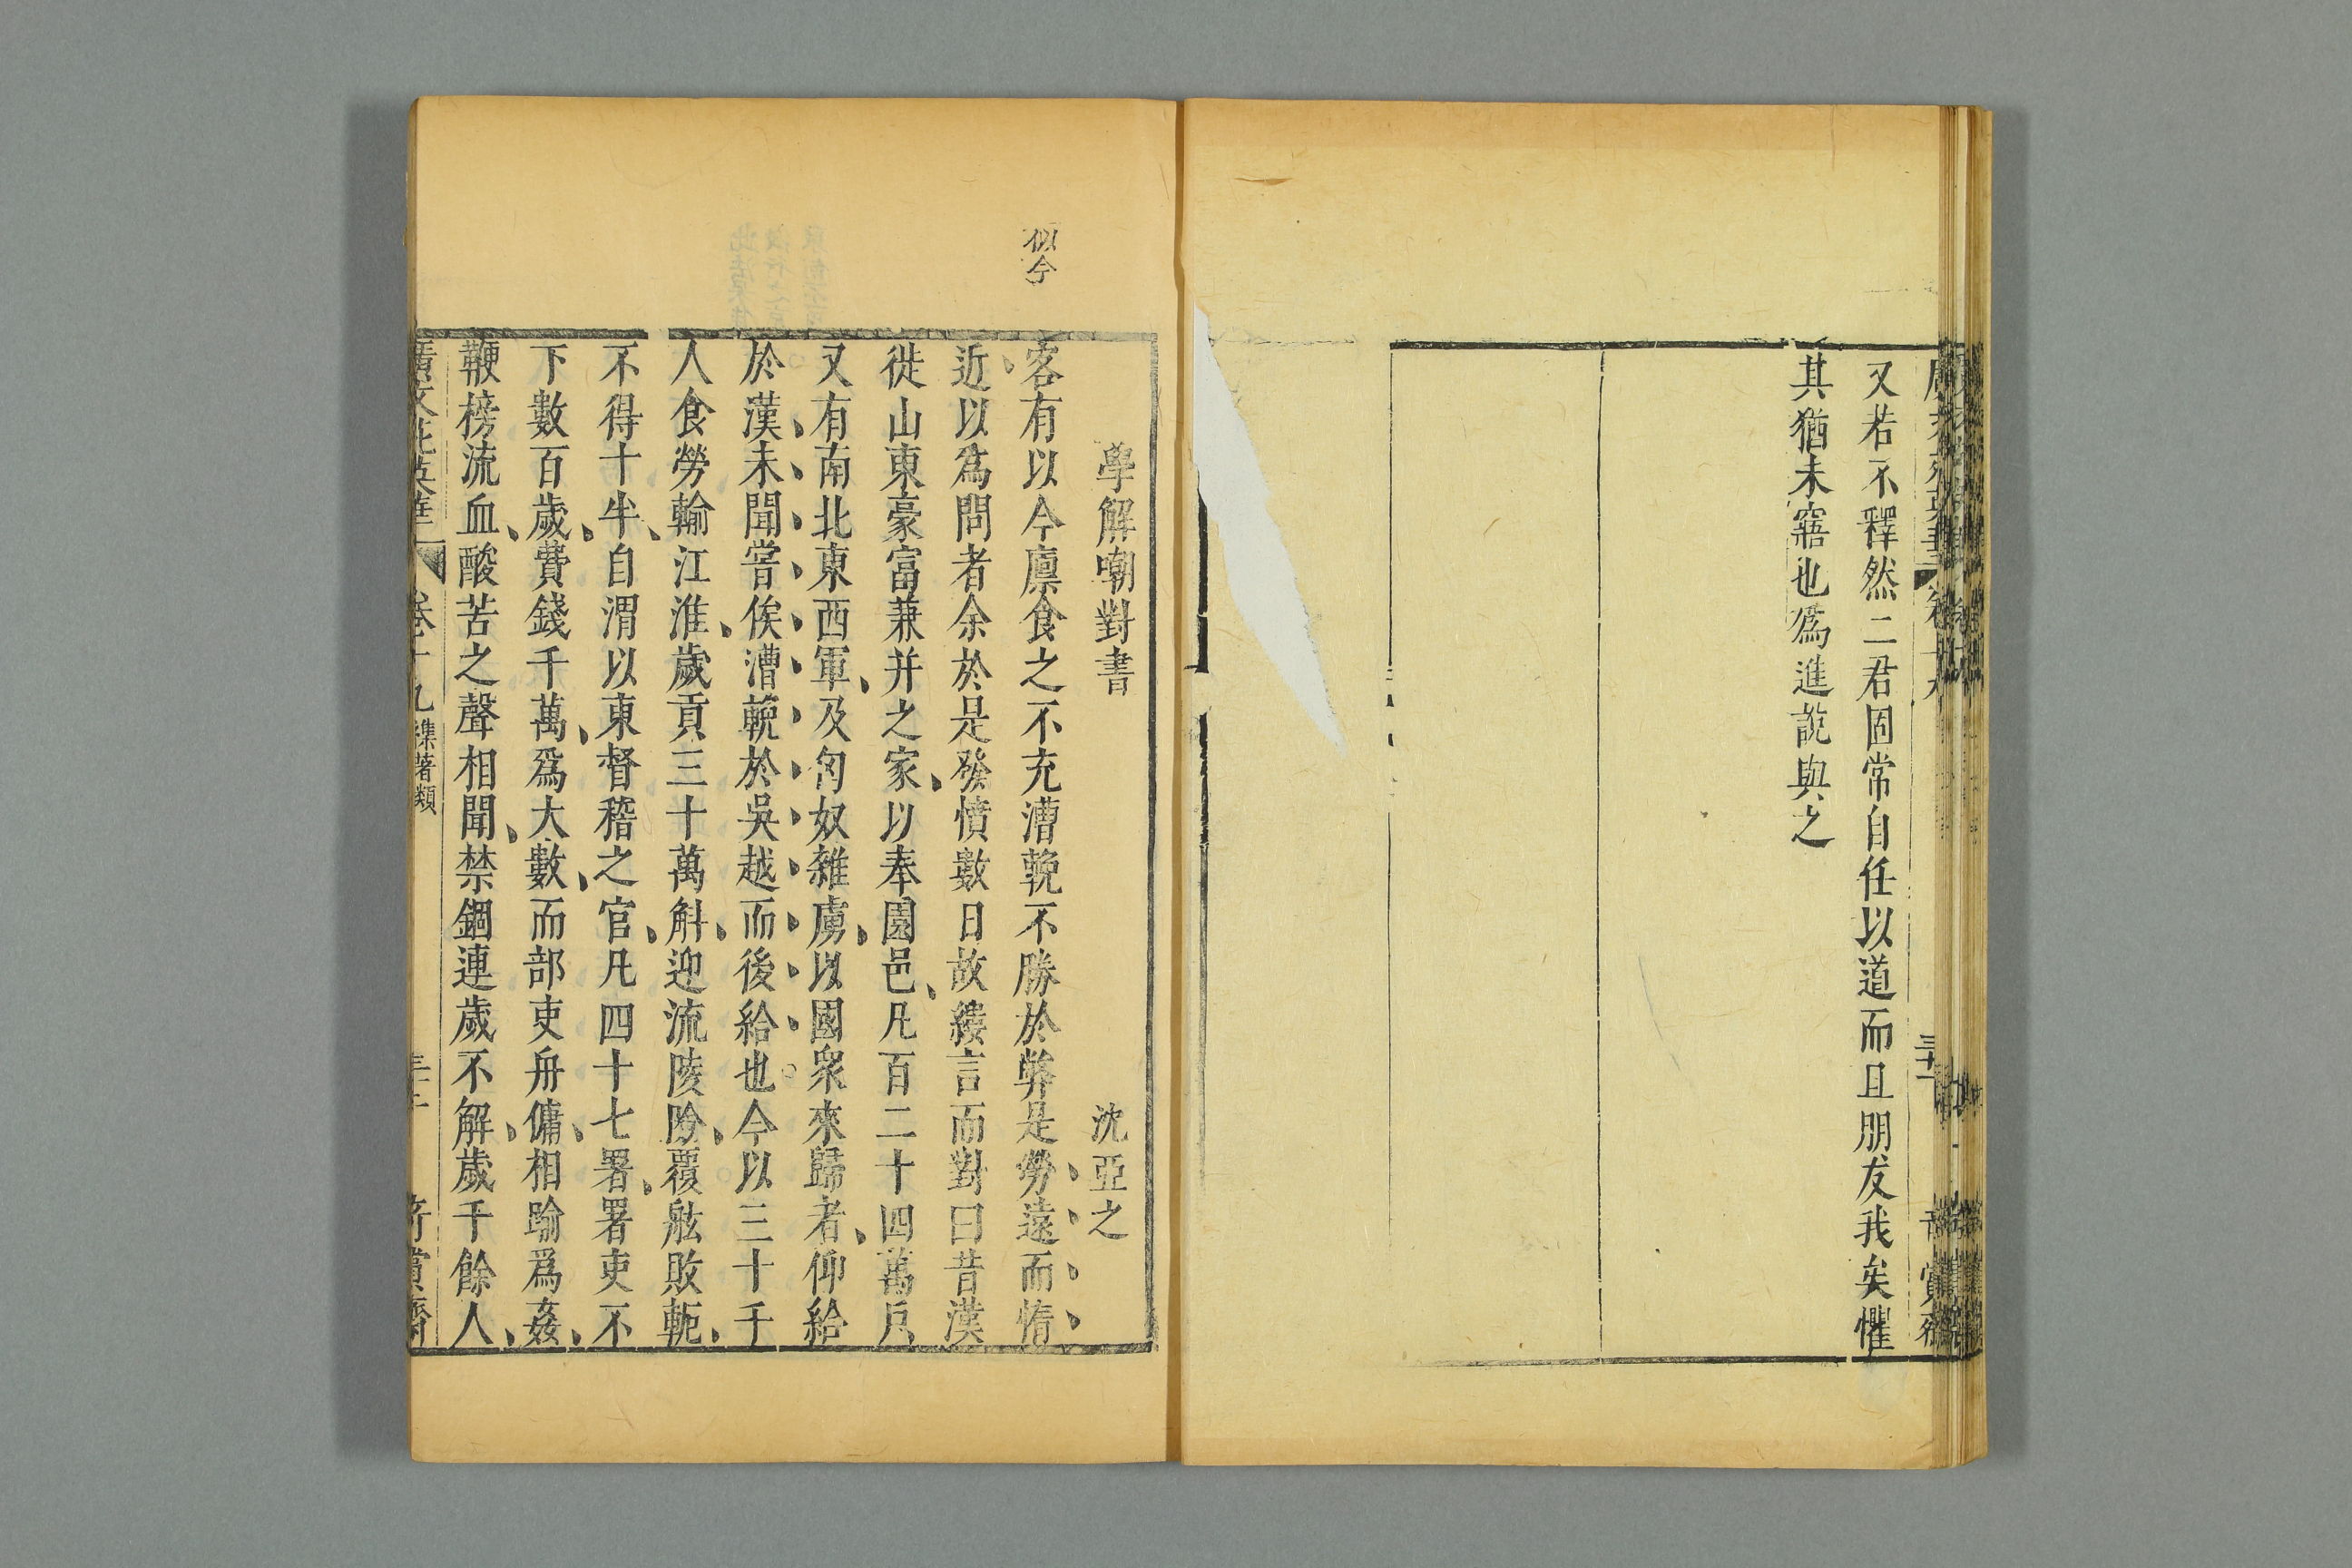 又若不釋然二君固常自任以道而且朋友我矣懼
其猶未寤也爲進說與之
學解嘲對書
沈亞之
似今
客有以今廪食之不充漕輓不勝於弊是勞遠而惰
近以爲問者余於是發憤數日故縷言而對曰昔漢
徙山東豪富兼并之家以奉園邑凡百二十四萬戶
又有南北東西軍及匈奴雜虜以國衆來歸者仰給
於漢未聞嘗俟漕輓於吳越而後給也今以三十千
人食勞輸江淮歲貢三十萬斛迎流陵險覆舷敗軛
不得十半自渭以東督稽之官凡四十七署署吏不
下數百歲費錢千萬爲大數而部吏舟傭相踰爲姦
鞭榜流血酸苦之聲相聞禁錮連歲不解歲千餘人
卷十九 襍著類